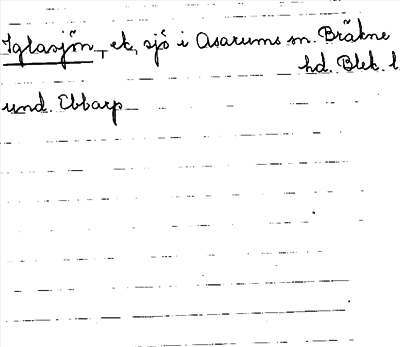 Iglasjön, ek, sjö i Asarums sn. Bräkne
hd. Blek. l
und. Ebbarp